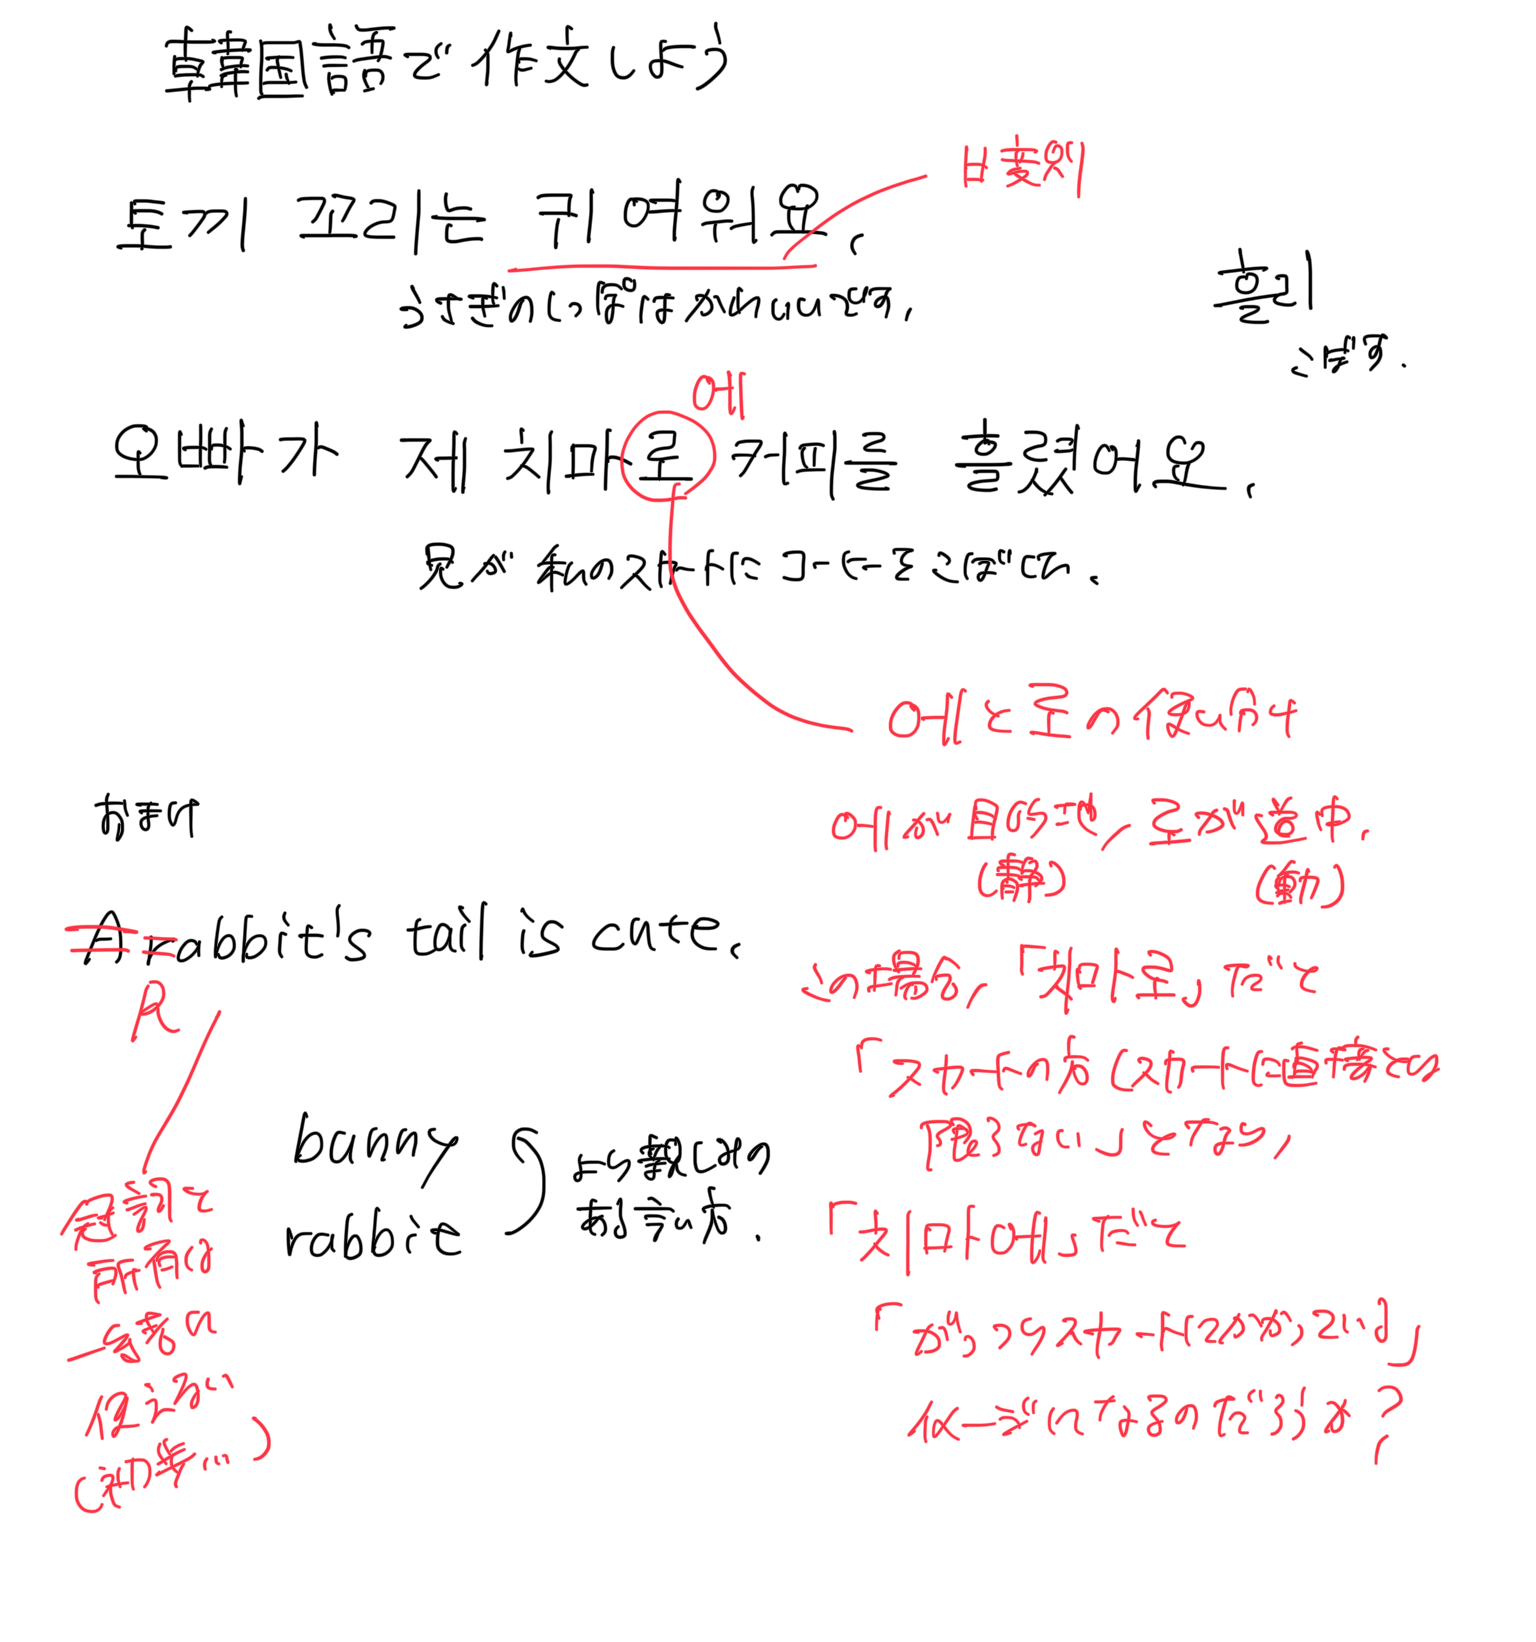 韓国語で作文しよう
ㅂ変則
토끼 꼬리는 귀여워요.
うさぎのしっぽはかわいいです。
흘리
こぼす.
에
오빠가 제 치마로 커피를 흘렸어요.
兄が私のスカートにコーヒーをこぼした.
에と로の使い分け
에が目的地, 로が道中.
(静) (動)
おまけ
A rabbit's tail is cute.
R
この場合,「치마로」だと
「スカートの方(スカートに直接とは
限らない」となり,
「치마에」だと
「がっつりスカートにかかっている」
イメージになるのだろうか?
bunny
rabbit
より親しみの
ある言い方.
冠詞と
所有は
一緒に
使えない
(初歩…)